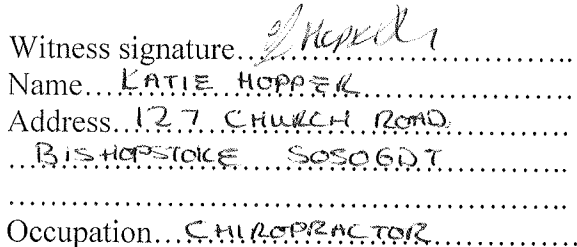 Witness signature
Name... KATIE HOPPER
Address... 127 CHURCH ROAD
BISHOPSTOKE SO506DT
Occupation... CHIROPRACTOR